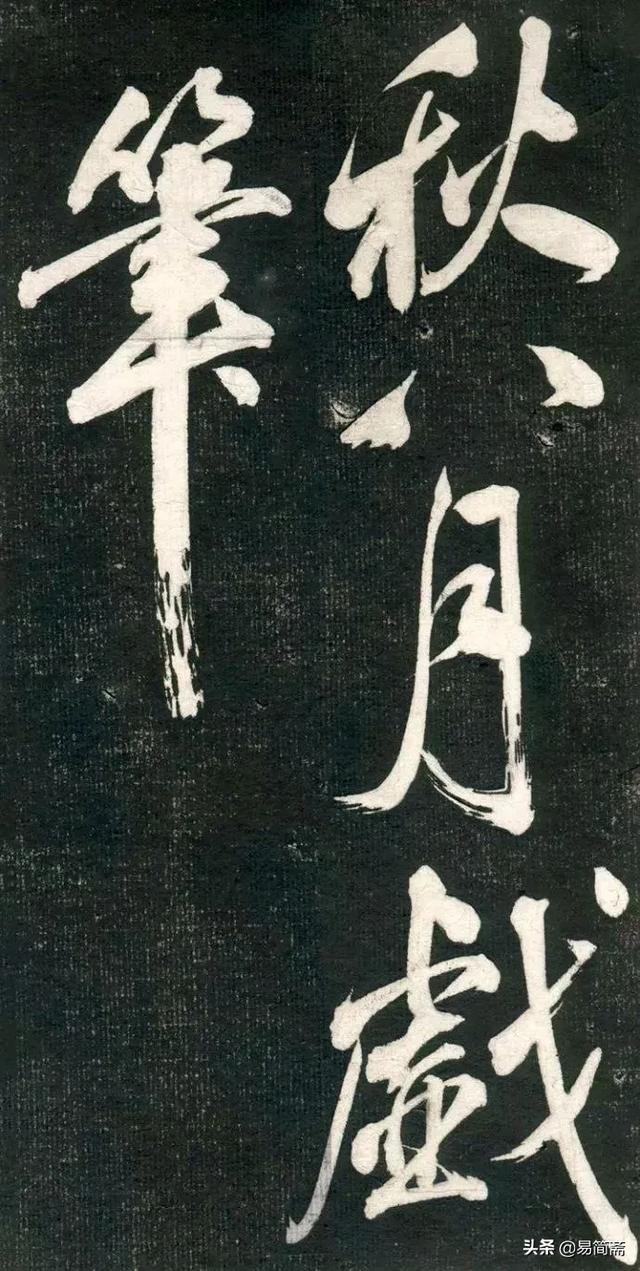 秋八月戲
筆
头条 @易简斋